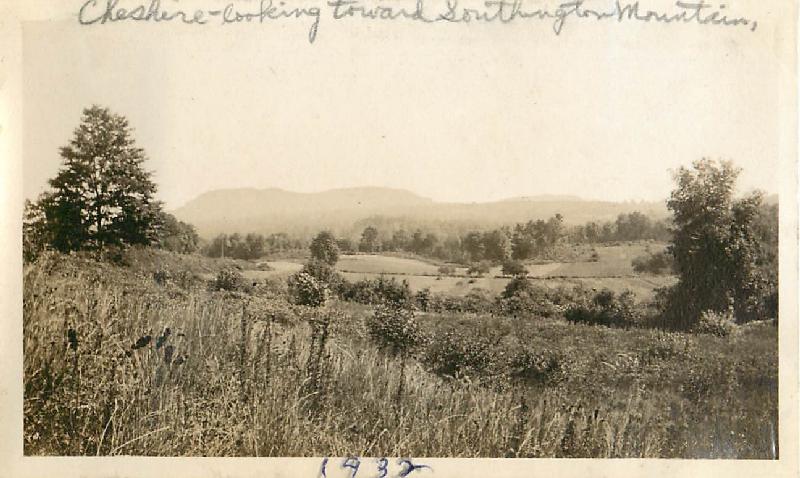 Cheshire-looking toward Southington Mountain,
1932